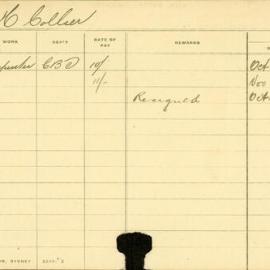 H Collier
WORK DEP'T RATE OF PAY REMARKS
CBD 10/ Oct
11/- Nov
Resigned Oct
SYDNEY